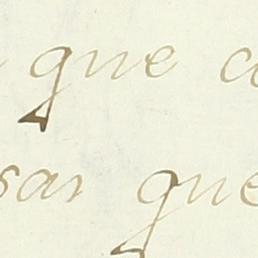 que
sar que